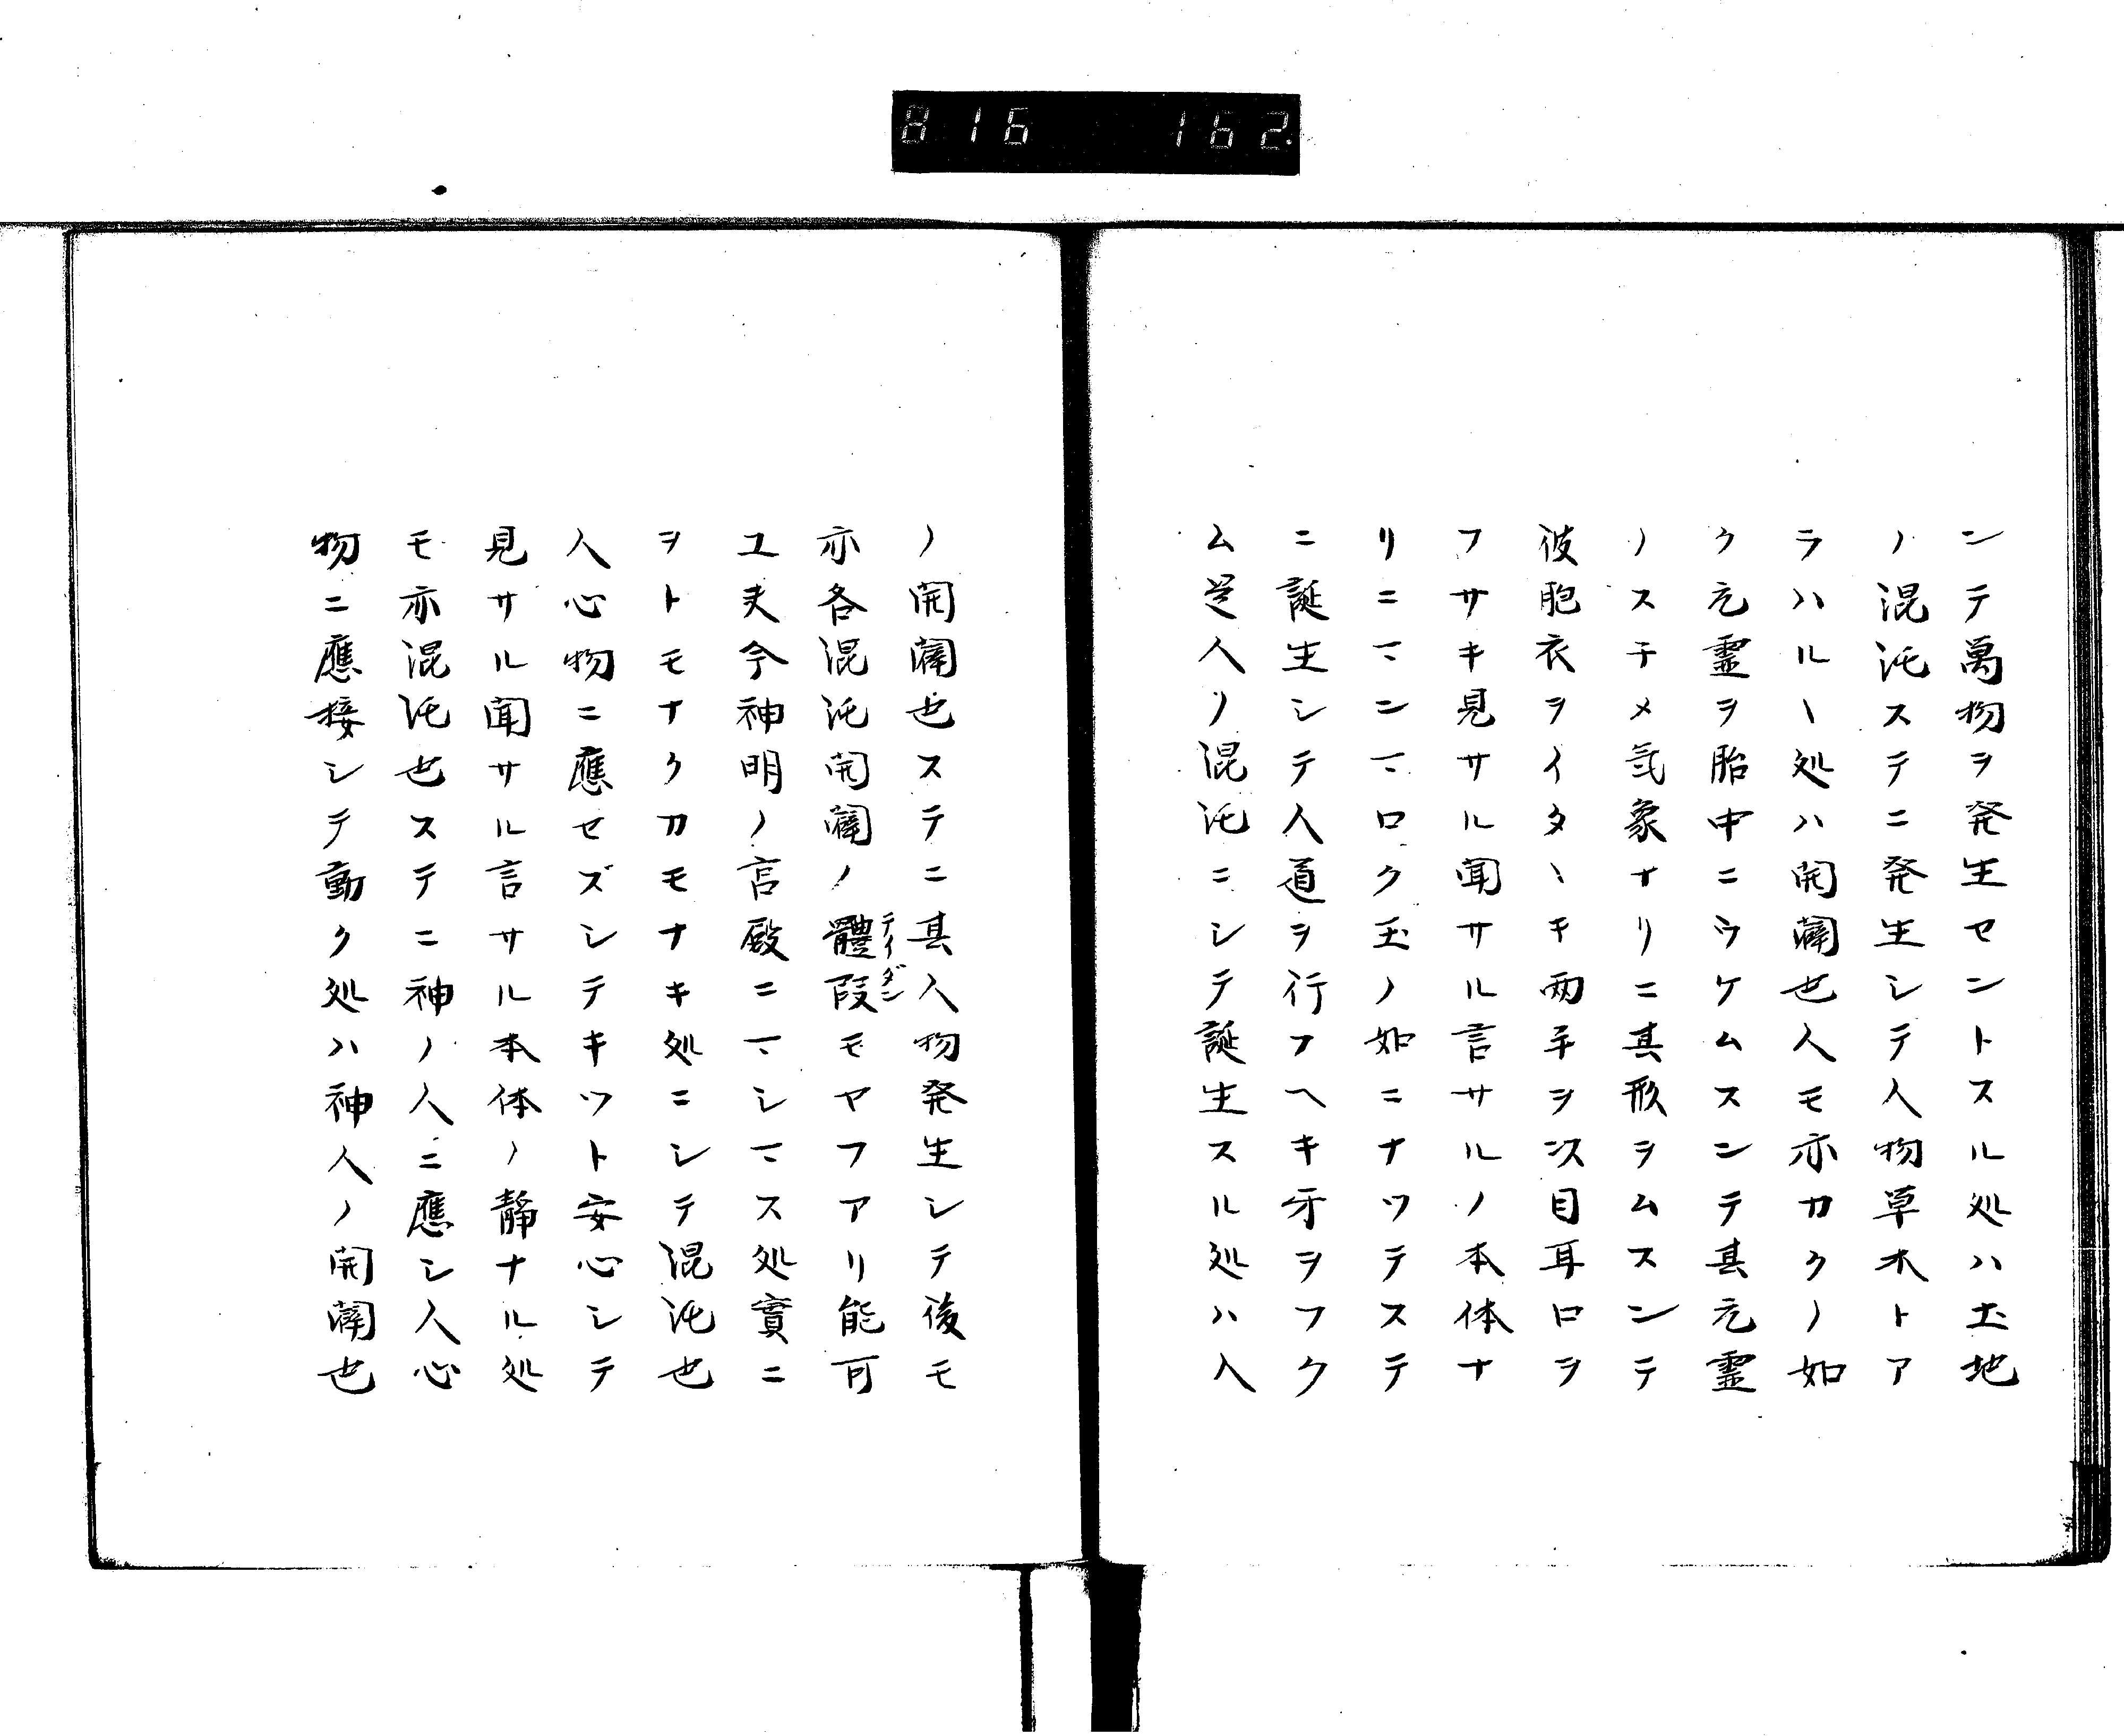 816 162.
ンテ萬物ヲ発生セントスル処ハ土地
ノ混沌ステニ発生シテ人物草木トア
ラハルヽ処ハ開闢也人モ亦カクノ如
ク元霊ヲ胎中ニウケムスンテ其元霊
ノステメ気象ナリニ其形ヲムスンテ
彼胞衣ヲイタヽキ両手ヲ次目耳口ヲ
フサキ見サル聞サル言サルノ本体ナ
リニマンマロク玉ノ如ニナツテステ
ニ誕生シテ人道ヲ行フヘキ牙ヲフク
ム是人ノ混沌ニシテ誕生スル処ハ人
ノ開闢也ステニ其人物発生シテ後モ
亦各混沌開闢ノ體段モヤフアリ能可
テイダン
ユ夫今神明ノ言殿ニマシマス処實ニ
ヲトモナクカモナキ処ニシテ混沌也
人心物ニ應セズシテキツト安心シテ
見サル聞サル言サル本体ノ靜ナル処
モ亦混沌也ステニ神ノ人ニ應シ人心
物ニ應接シテ動ク処ハ神人ノ開闢也